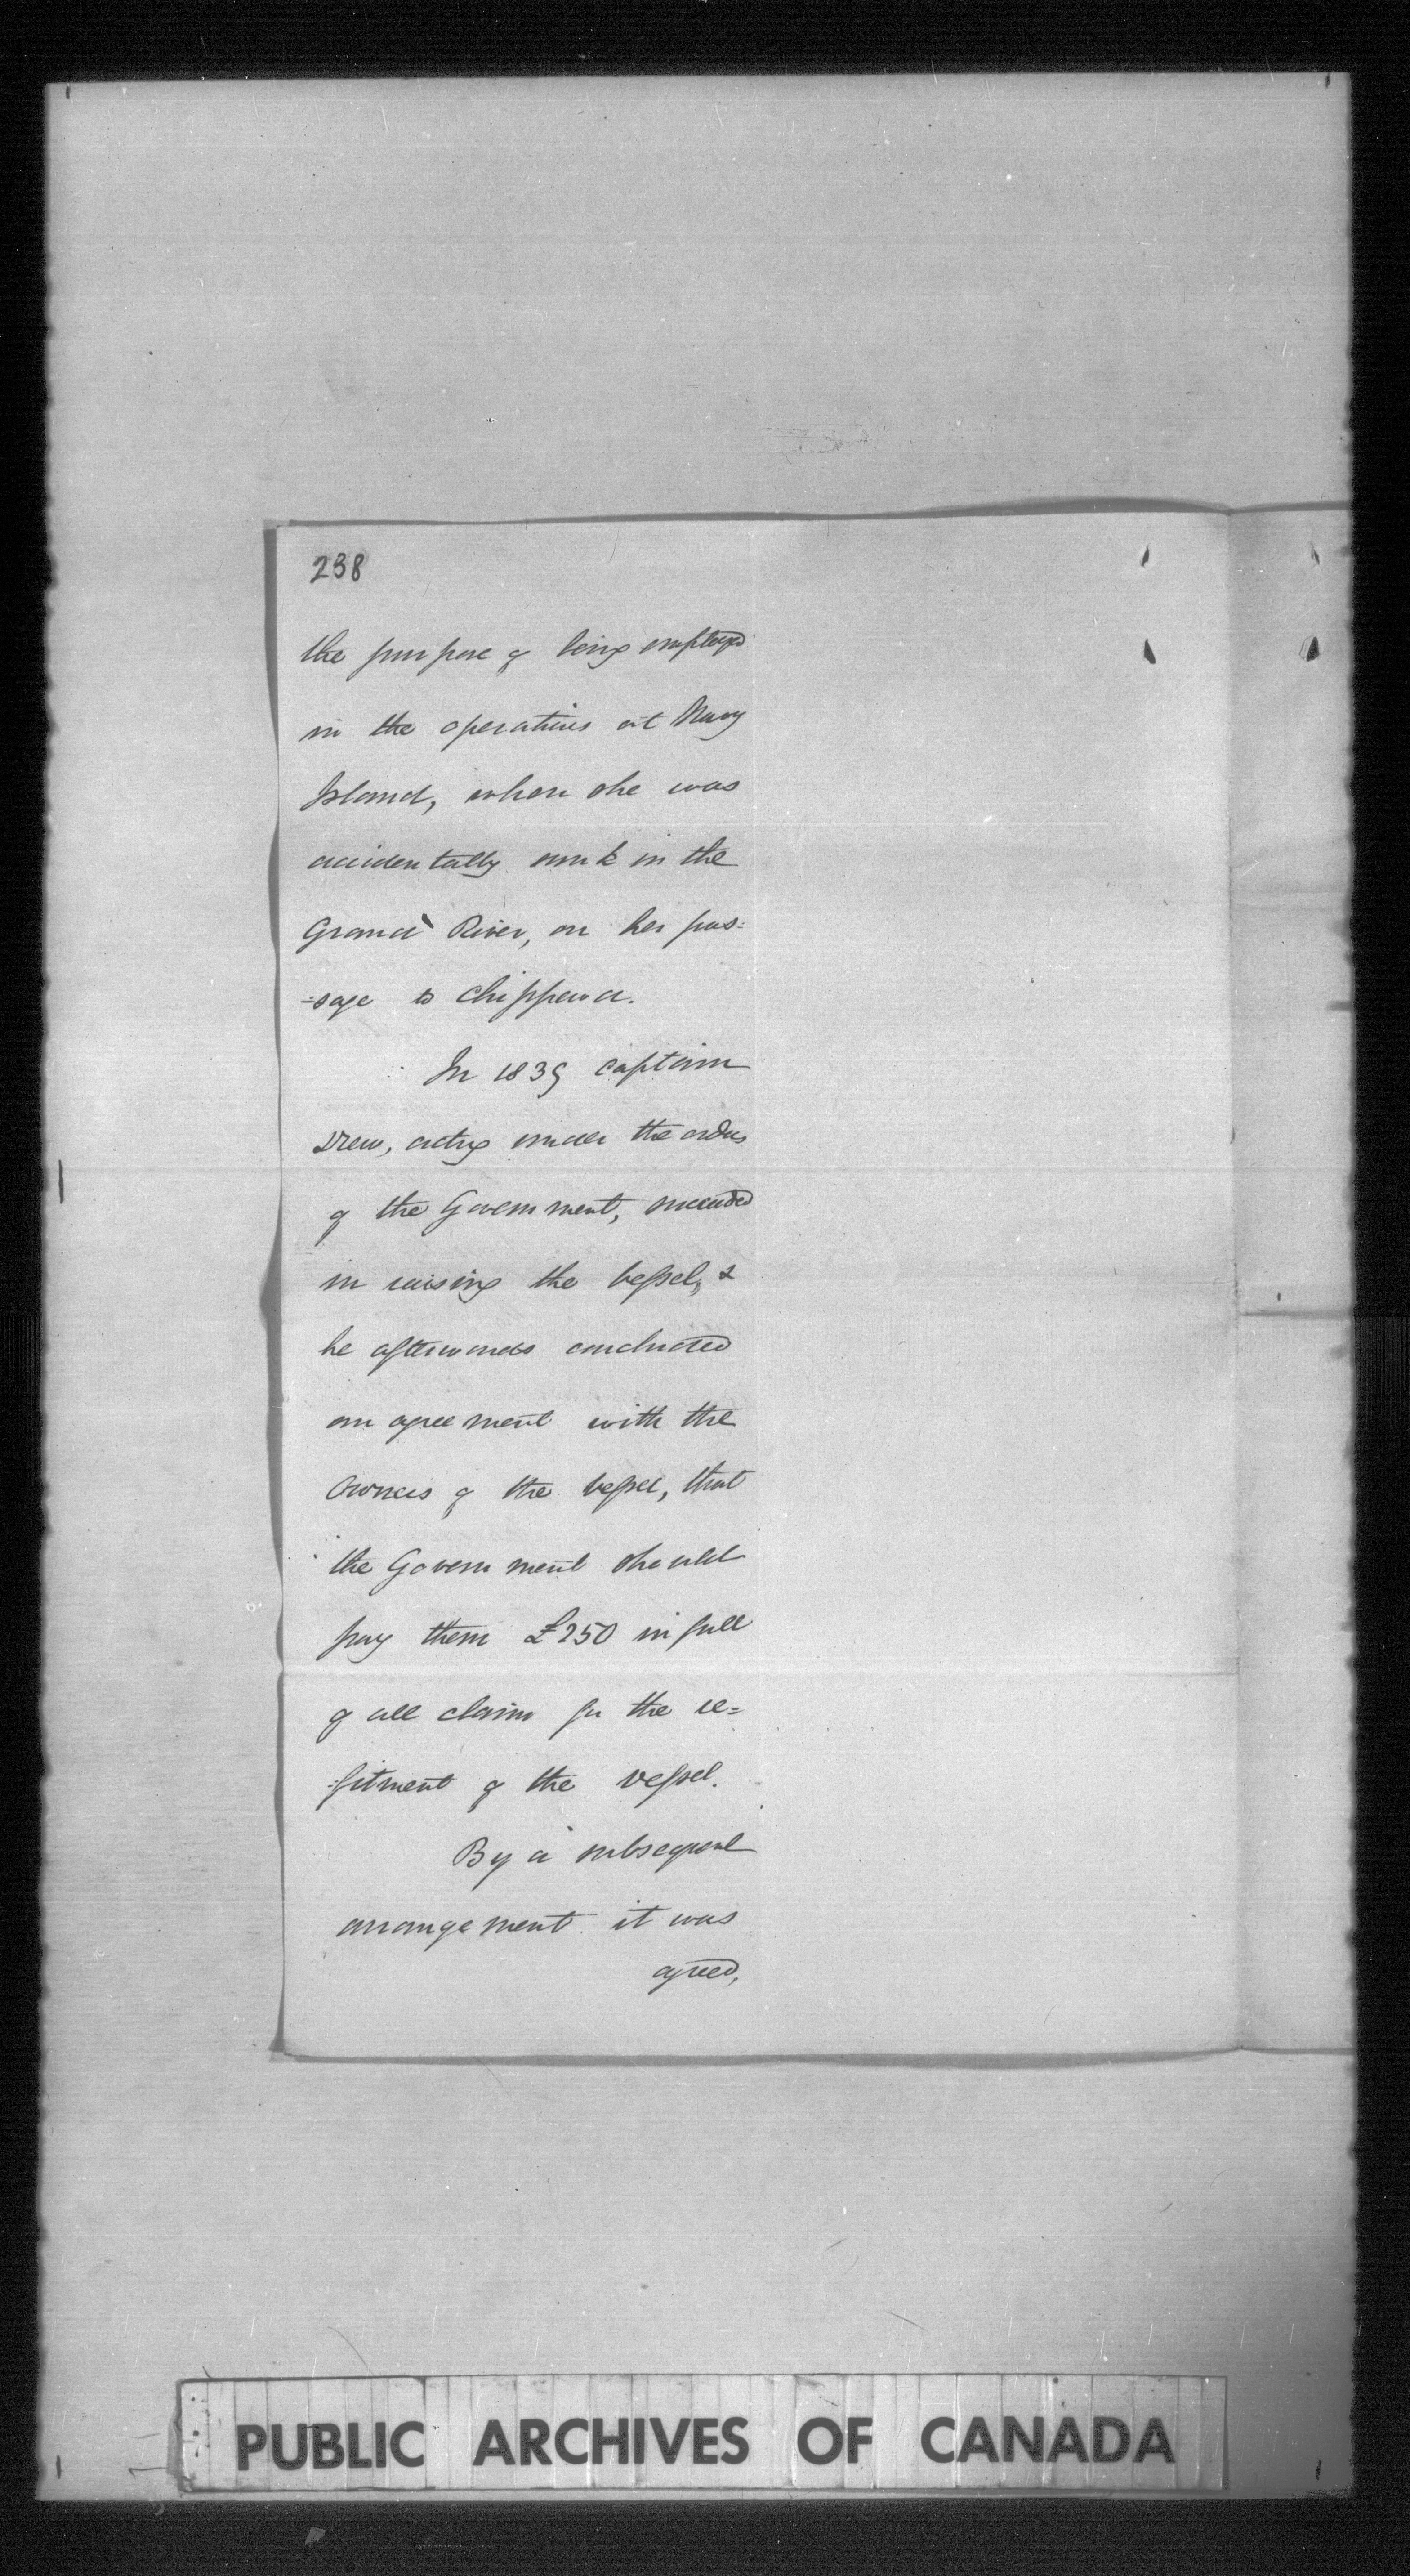 238
the purpose of being employed
in the operations at Navy
Island, when she was
accidentally sunk in the
Grand River, on her pas=
=sage to Chippewa.
In 1839 Captain
Drew, acting under the orders
of the Government, succeeded
in raising the vessel, &
he afterwards concluded
an agreement with the
Owners of the vessel, that
the Government should
pay them £250 in full
of all claim for the re=
=fitment of the vessel.
By a subsequent
arrangement it was
agreed,
PUBLIC ARCHIVES OF CANADA